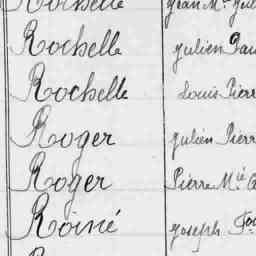 Rochelle Jean M.
Rochelle Julien
Rochelle Louis Pierr
Roger Julien Pierr
Roger Pierre Mie
Roiné Joseph